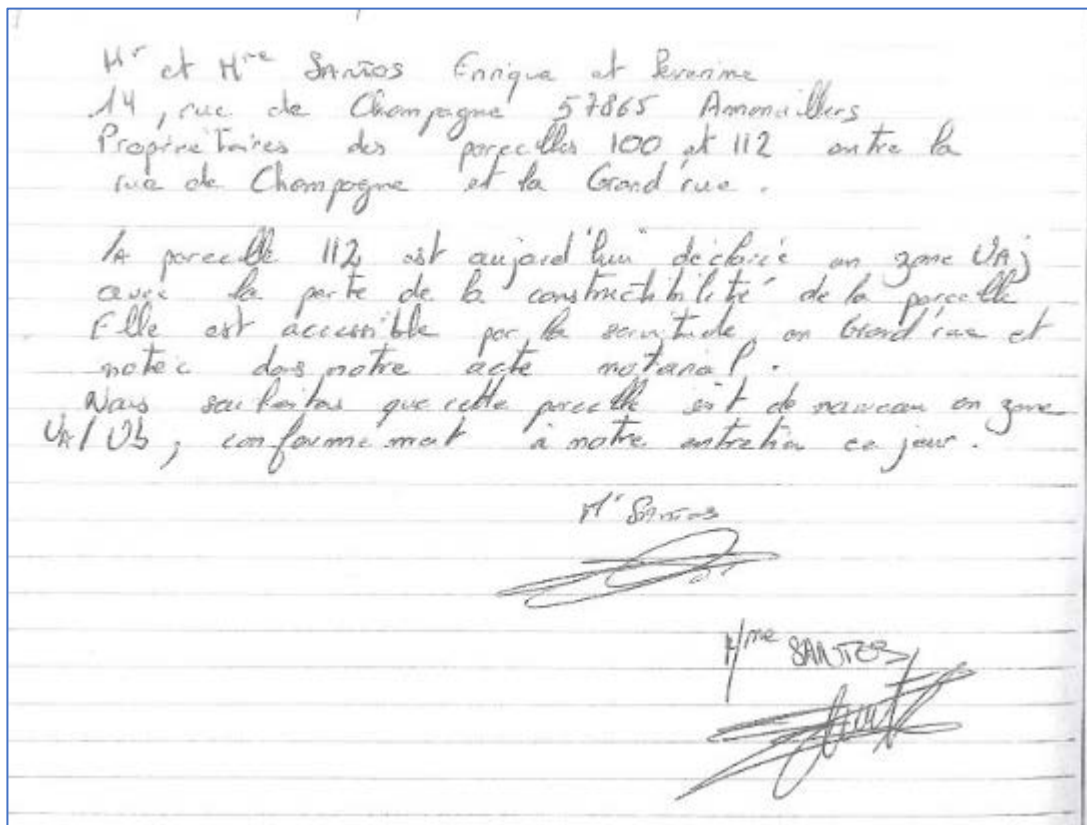 Mr et Mme SANTOS Enrique et Severine
14, rue de Champagne 57865 Amanvillers
Propriétaires des parcelles 100 et 112 entre la
rue de Champagne et la Grand'rue.
LA parcelle 112 est aujourd'hui déclarée en zone UAj
avec la perte de la constructibilité de la parcelle
Elle est accessible par la servitude, en Grand'rue et
notée dans notre acte notarial.
Nous souhaitons que cette parcelle soit de nouveau en zone
UA/Ub, conformement à notre entretien ce jour.
Mr SANTOS
Mme SANTOS